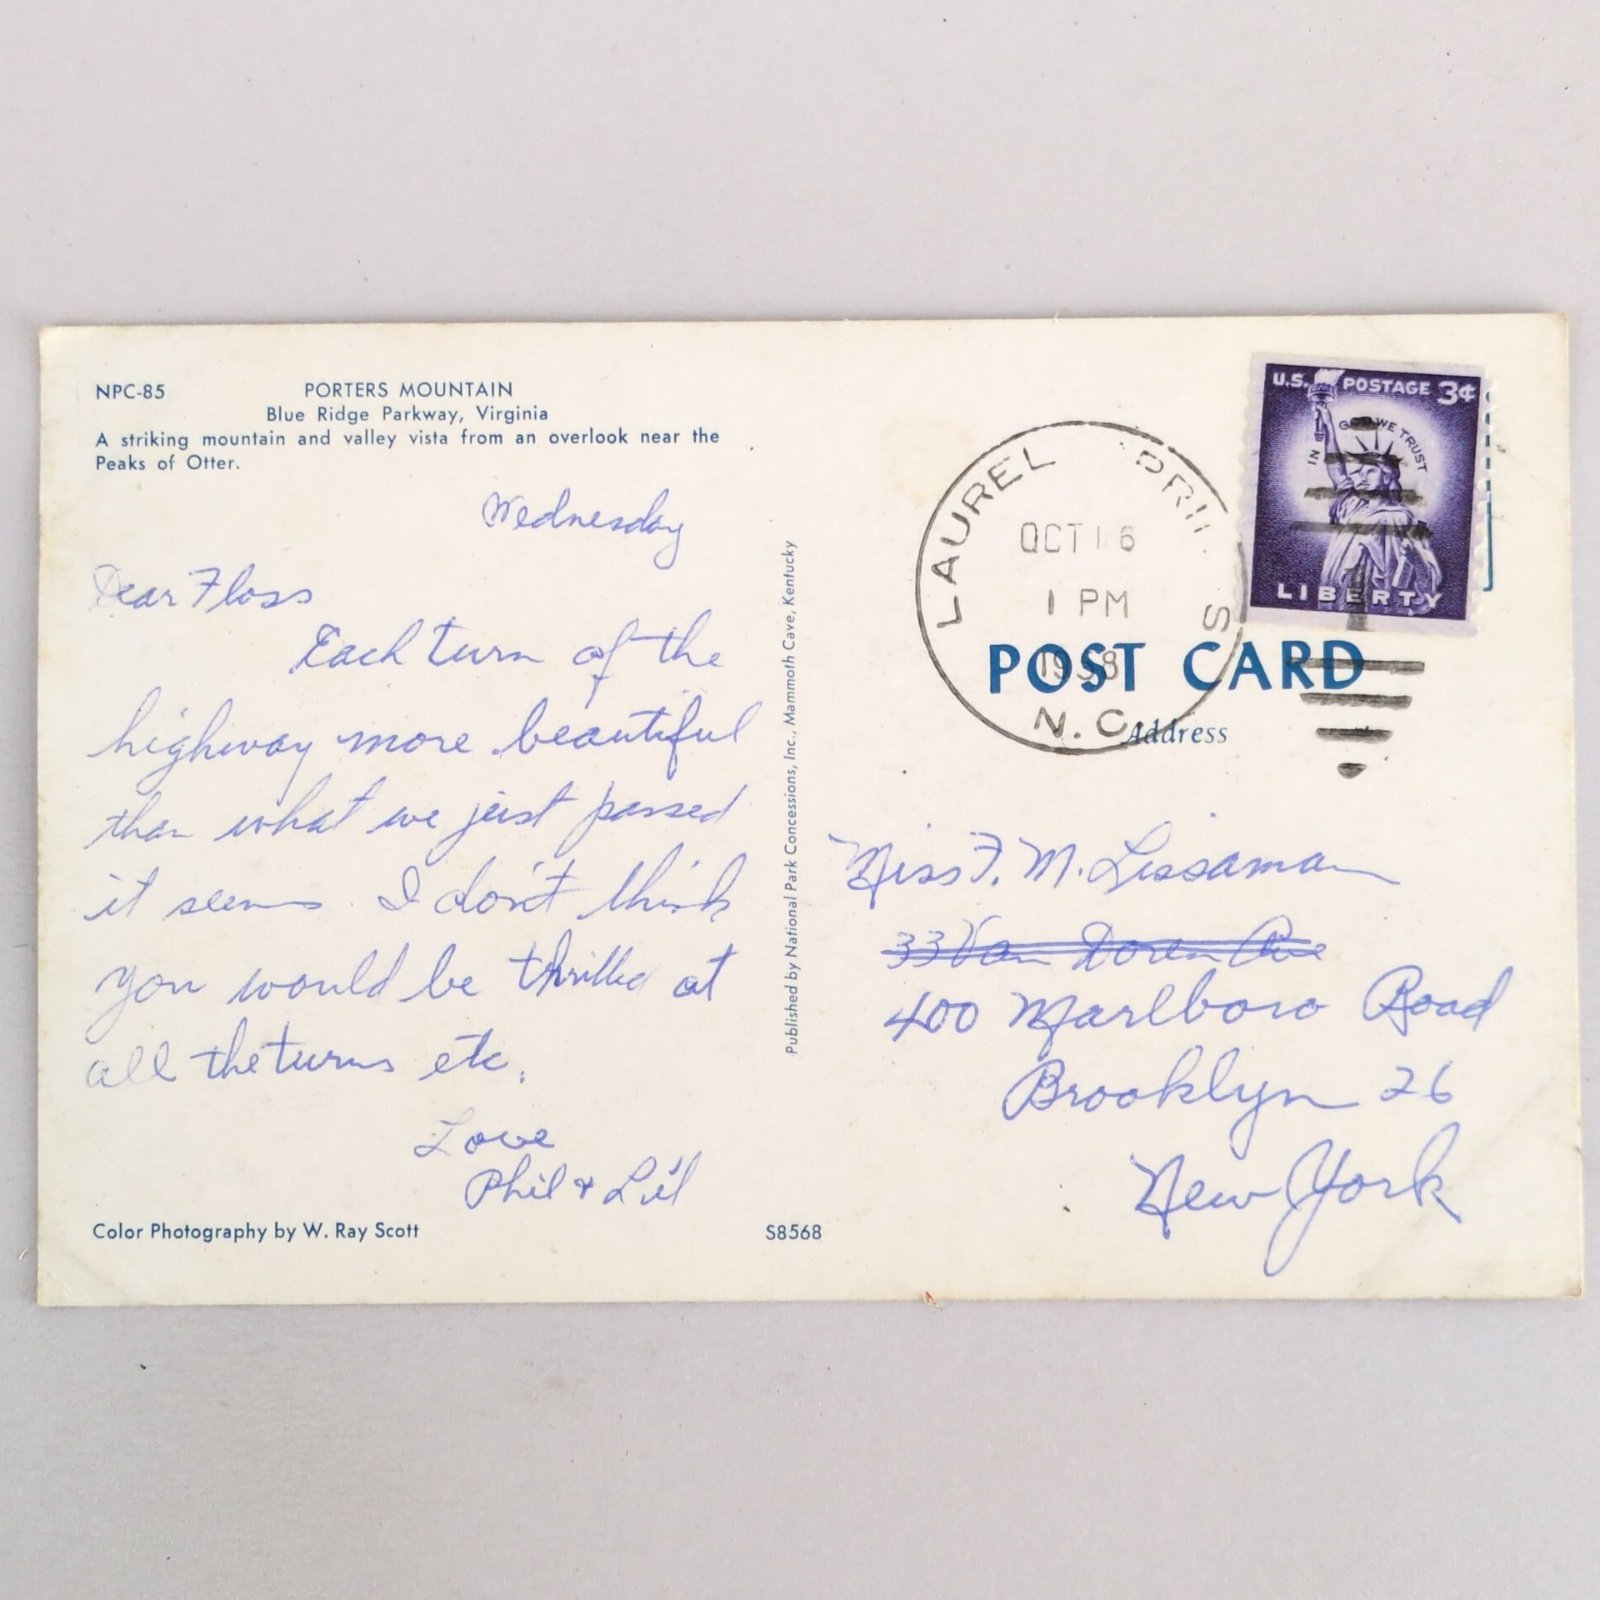 NPC-85 PORTERS MOUNTAIN
Blue Ridge Parkway, Virginia
A striking mountain and valley vista from an overlook near the
Peaks of Otter.
Wednesday
Dear Floss
Each turn of the
highway more beautiful
than what we just passed
it seems. I don't think
you would be thrilled at
all the turns etc.
Love
Phil + Lil
Color Photography by W. Ray Scott
S8568
Published by National Park Concessions, Inc., Mammoth Cave, Kentucky
LAUREL SPRINGS
OCT 16
1 PM
1958
N.C.
U.S. POSTAGE 3¢
IN GOD WE TRUST
LIBERTY
POST CARD
Address
Miss F. M. Lissaman
33 Van Doren Ave
400 Marlboro Road
Brooklyn 26
New York